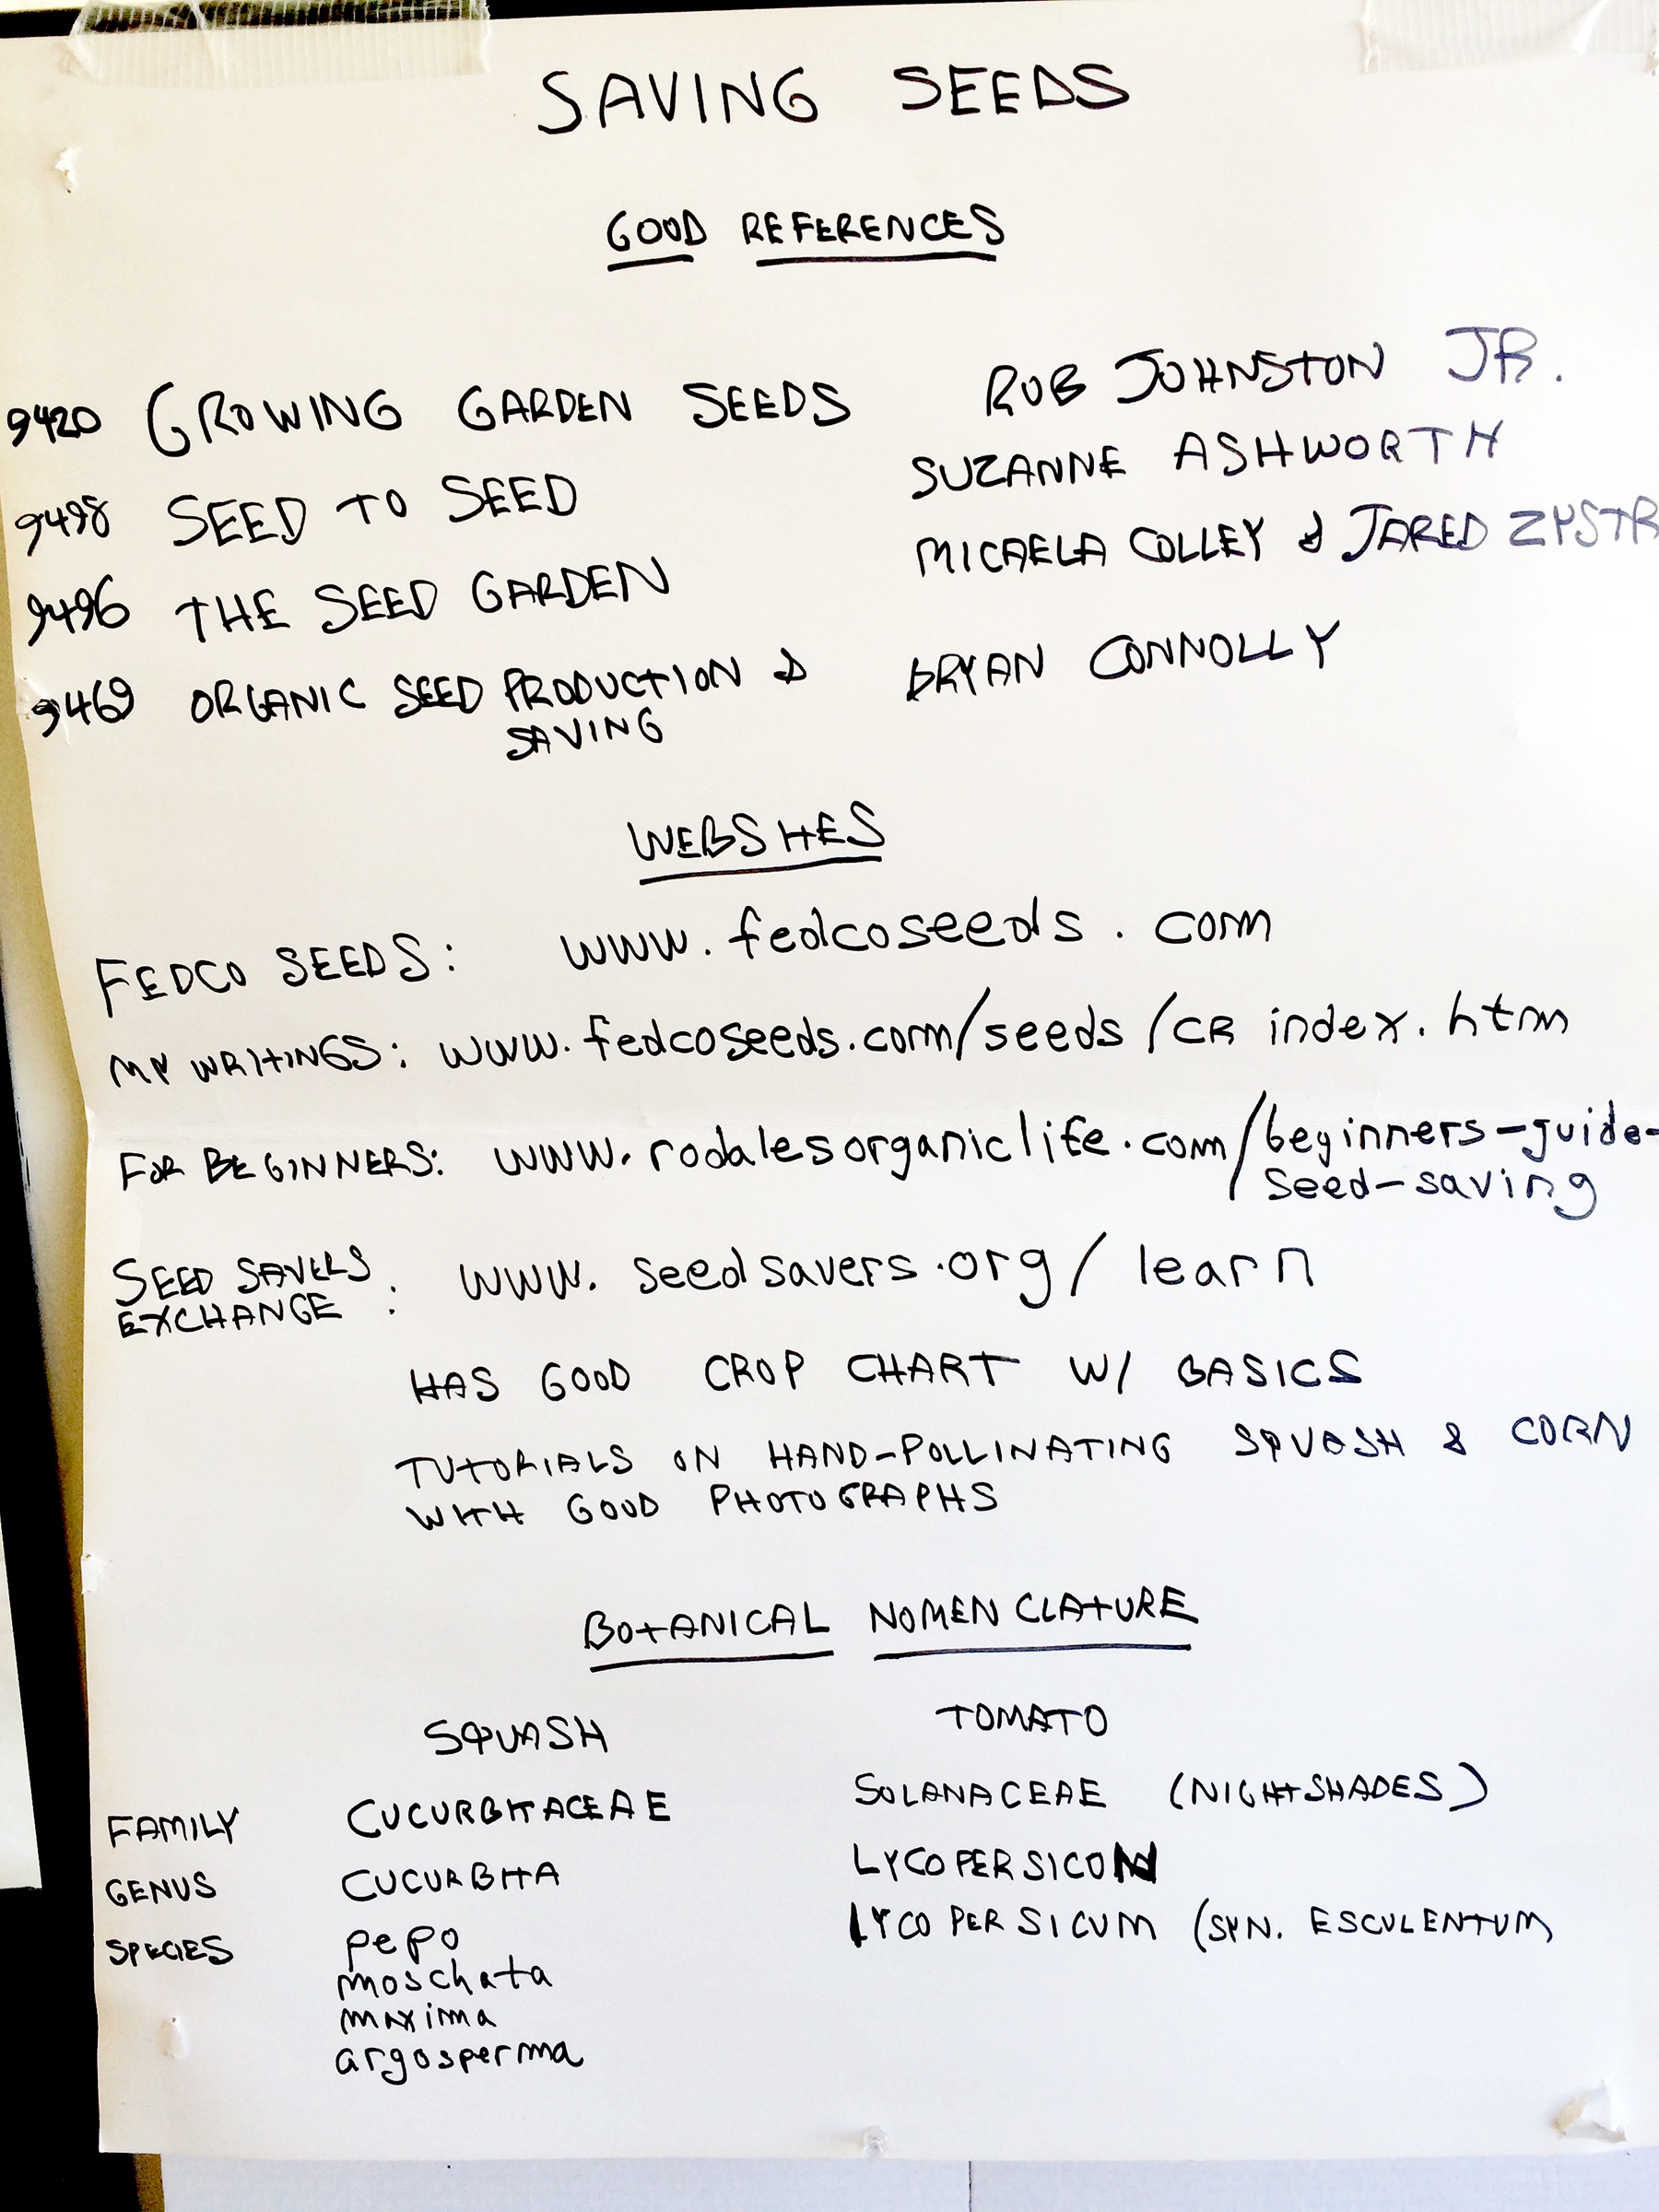 SAVING SEEDS
GOOD REFERENCES
9420 GROWING GARDEN SEEDS ROB JOHNSTON JR.
9498 SEED TO SEED SUZANNE ASHWORTH
9496 THE SEED GARDEN MICAELA COLLEY & JARED ZYSTR
9469 ORGANIC SEED PRODUCTION & BRYAN CONNOLLY
SAVING
WEBSITES
FEDCO SEEDS: www.fedcoseeds.com
MY WRITINGS: www.fedcoseeds.com/seeds/CR index.htm
FOR BEGINNERS: www.rodalesorganiclife.com/beginners-guide-
seed-saving
SEED SAVERS
EXCHANGE : www.seedsavers.org/learn
HAS GOOD CROP CHART W/ BASICS
TUTORIALS ON HAND-POLLINATING SQUASH & CORN
WITH GOOD PHOTOGRAPHS
BOTANICAL NOMENCLATURE
SQUASH TOMATO
FAMILY CUCURBITACEAE SOLANACEAE (NIGHTSHADES)
GENUS CUCURBITA LYCOPERSICON
SPECIES pepo LYCOPERSICUM (SYN. ESCULENTUM
moschata
maxima
argosperma